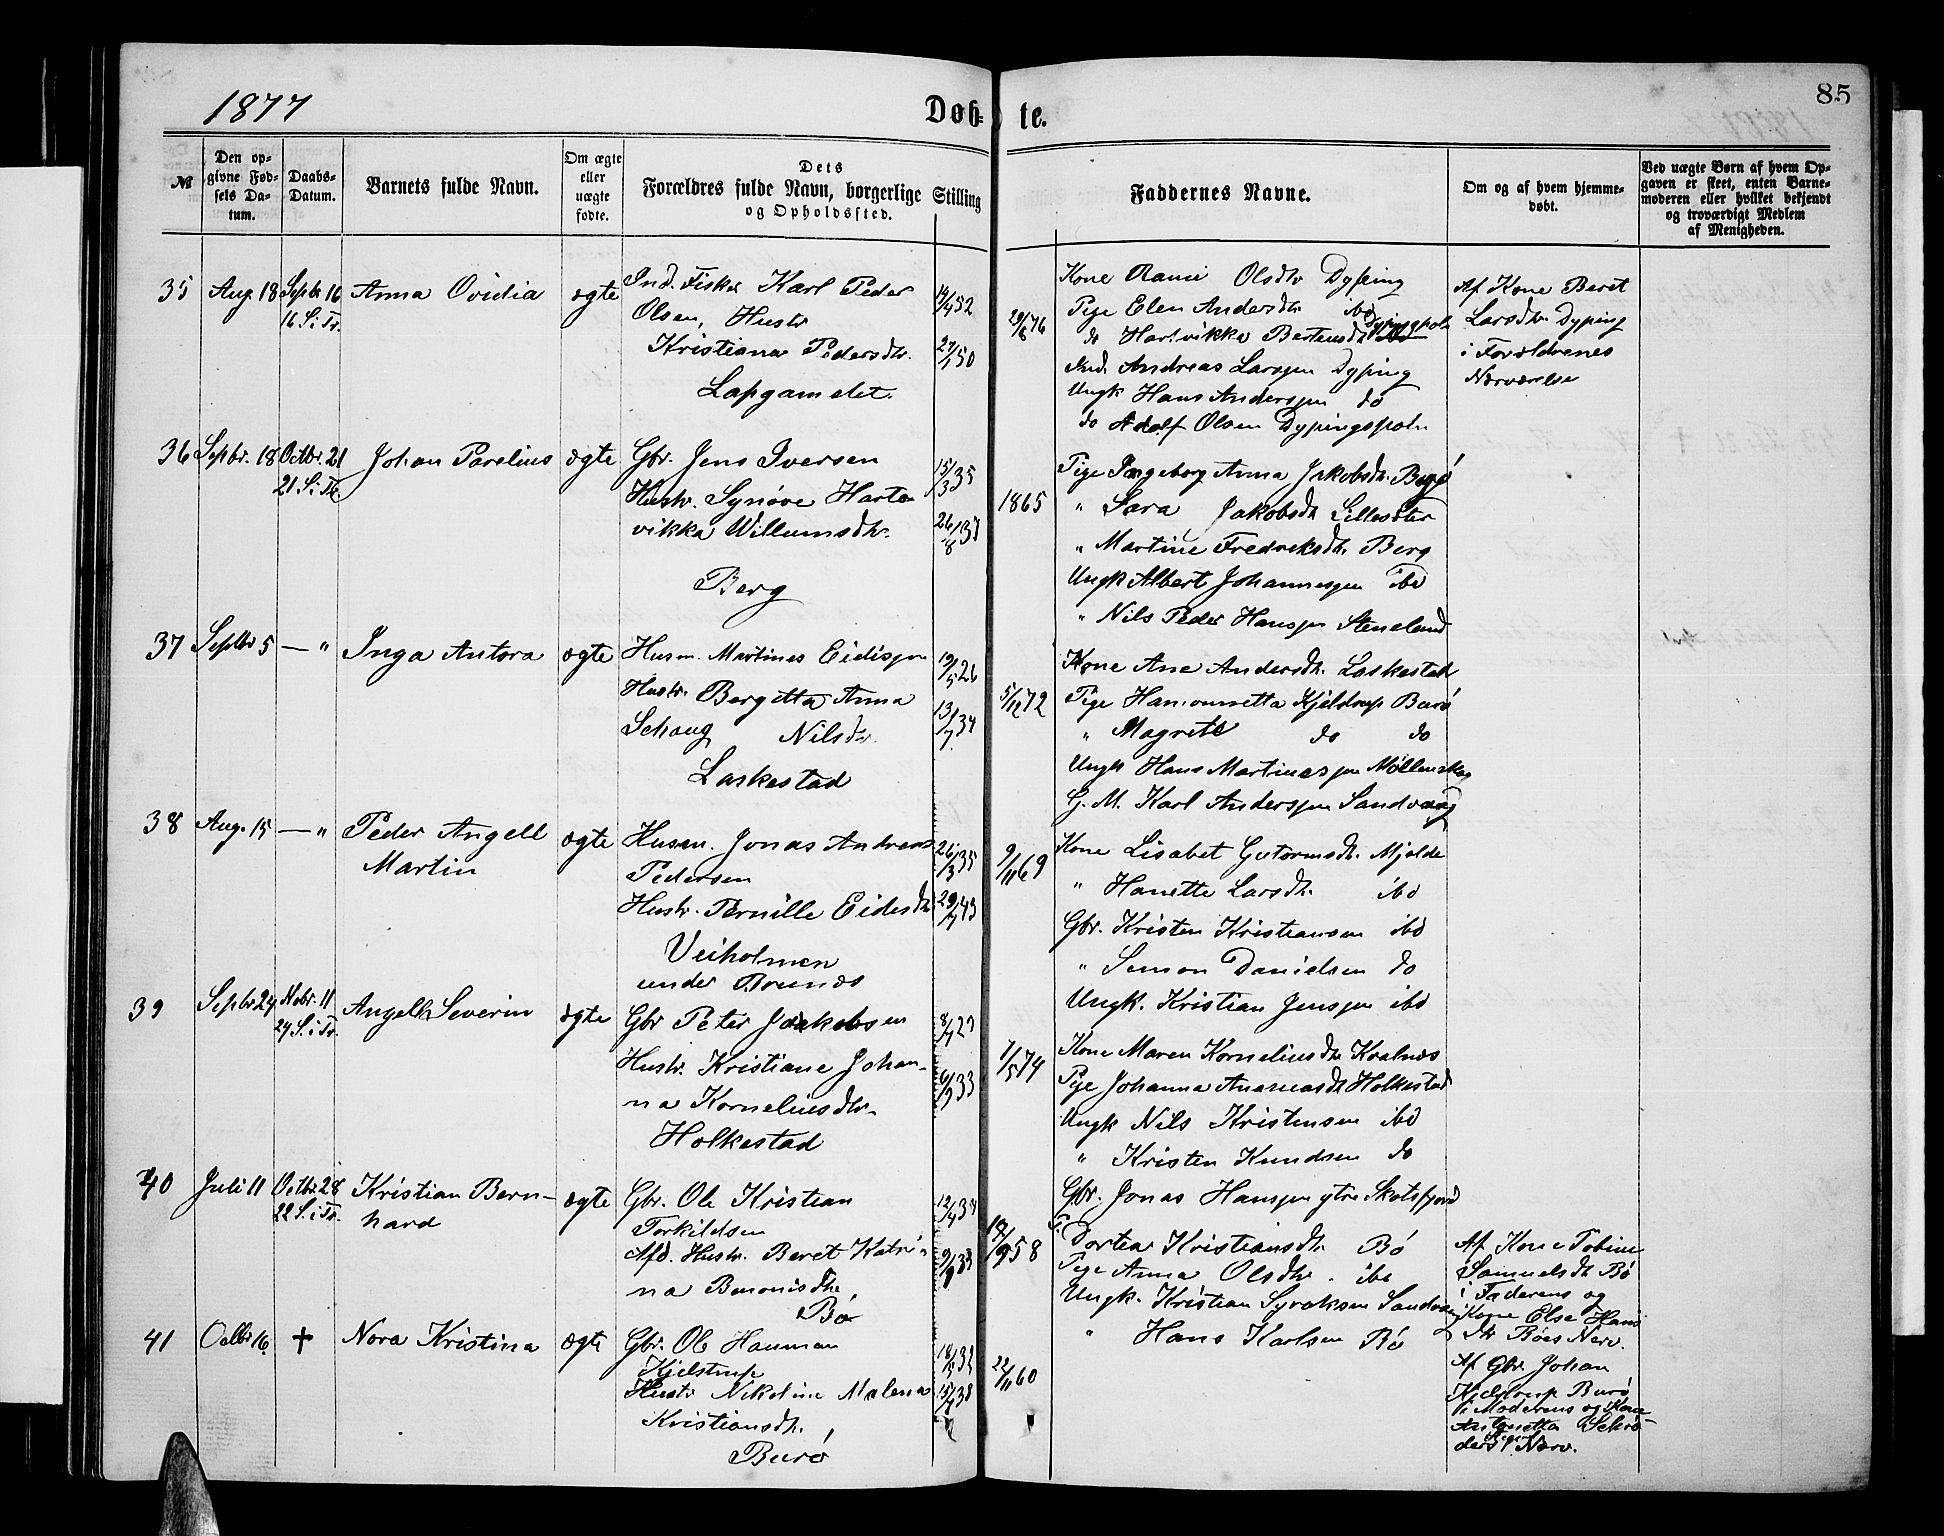 1877
Døb-
te.
85
№
Den op-
givne Fød-
sels Da-
tum.
Daabs-
Datum.
Barnets fulde Navn.
Om ægte
eller
uægte
fødte.
Dets
Forældres fulde Navn, borgerlige Stilling
og Opholdssted.
Faddernes Navne.
Om og af hvem hjemme-
døbt.
Ved uægte Børn af hvem Op-
gaven er skeet, enten Barne-
moderen eller hvilket bekjendt
og troværdigt Medlem
af Menigheden.
35 Aug. 18 Septbr 16
16 S. i Tr.
Anna Ovidia
ægte
Ind. Fisker Karl Peder
Olsen, Hustr
Kristiana Pedersdtr.
Lapgamelet.
27/1 50
29/6 76
Kone Olsdtr Dyping
Pige Elen Andersdtr ibd
do Hartvikka Bertensdtr Dypingspoln
Ind. Andreas Larssen Dyping
Ungk Hans Anderssen do
do Adolf Olsen Dypingspoln
Af Kone Beret
Larsdtr. Dyping
i Forældrenes
Nærværelse
36 Septbr. 18 Octbr. 21
21 S. i Tr.
Johan Parelius
ægte
Gbr. Jens Iversen
Hustr. Synøve Hart-
vikka Willumsdtr.
Berg
15/3 35
26/8 37
1865
Pige Ingeborg Anna Jakobsdtr. Burø
" Sara Jakobsdtr
" Martine Fredriksdtr. Berg
Ungk Albert Johannessen ibd
" Nils Peder Hanssen Steneland
37 Septbr 5 — "
Inga Antora
ægte
Husm. Martines Eidissen
Hustr. Bergitta Anna
Schaug Nilsdtr.
Laskestad
19/5 26
13/7 34
5/12 72
Kone Ane Andersdtr. Laskestad
Pige Hansinetta Kjeldrup Burø
" Magrete do do
Ungk Hans Martinessen Møllenskog
G. M. Karl Anderssen Sandvaag
38 Aug. 15 — "
Peder Angell
Martin
ægte
Husm. Jonas Andreas
Pedersen
Hustr. Pernille Eidesdtr
Veiholmen
under Brunæs
26/3 35
29/7 43
9/11 69
Kone Lisabet Gutormsdtr. Mjelde
" Hanette Larsdtr. ibd
Gbr. Kristen Kristiansen ibd
" Simon Danielsen do
Ungk. Kristian Jenssen ibd
39 Septbr 24 Nobr. 11
24 S. i Tr.
Angell Severin
ægte
Gbr Peter Jakobsen
Hustr. Kristiane Johan-
na Korneliusdtr.
Holkestad
8/7 29
6/9 33
1/5 74
Kone Maren Korneliusdtr Kvalnæs
Pige Johanna Andreasdtr Holkestad
Ungk Nils Kristensen ibd
" Kristen Knudsen do
Gbr. Jonas Hanssen ytre Skotsfjord
40 Juli 11 Octbr. 28
22 S. i Tr.
Kristian Bern-
hard
ægte
Gbr. Ole Kristian
Torkildsen
Afd. Hustr. Beret Katri-
na Baronisdtr
Bø
58
Dortea Kristiansdtr Bø
Pige Anna Olsdtr. ibd
Ungk. Kristian Syvaksen Sandvaag
" Hans Karlsen Bø
Af Kone Tobine
Samuelsdtr Bø
i Faderens og
Kone Else Hans
dtr Bøes Nærv.
41 Octbr 16. +
Nora Kristina
ægte
Gbr. Ole Hauman
Kjelstrup
Hustr Nikoline Malena
Kristiansdtr.
Burø
22/11 60
Af Gbr. Johan
Kjeldrup Burø
i Moderens og Kone
Antonetta Schrø-
ders Nærv.